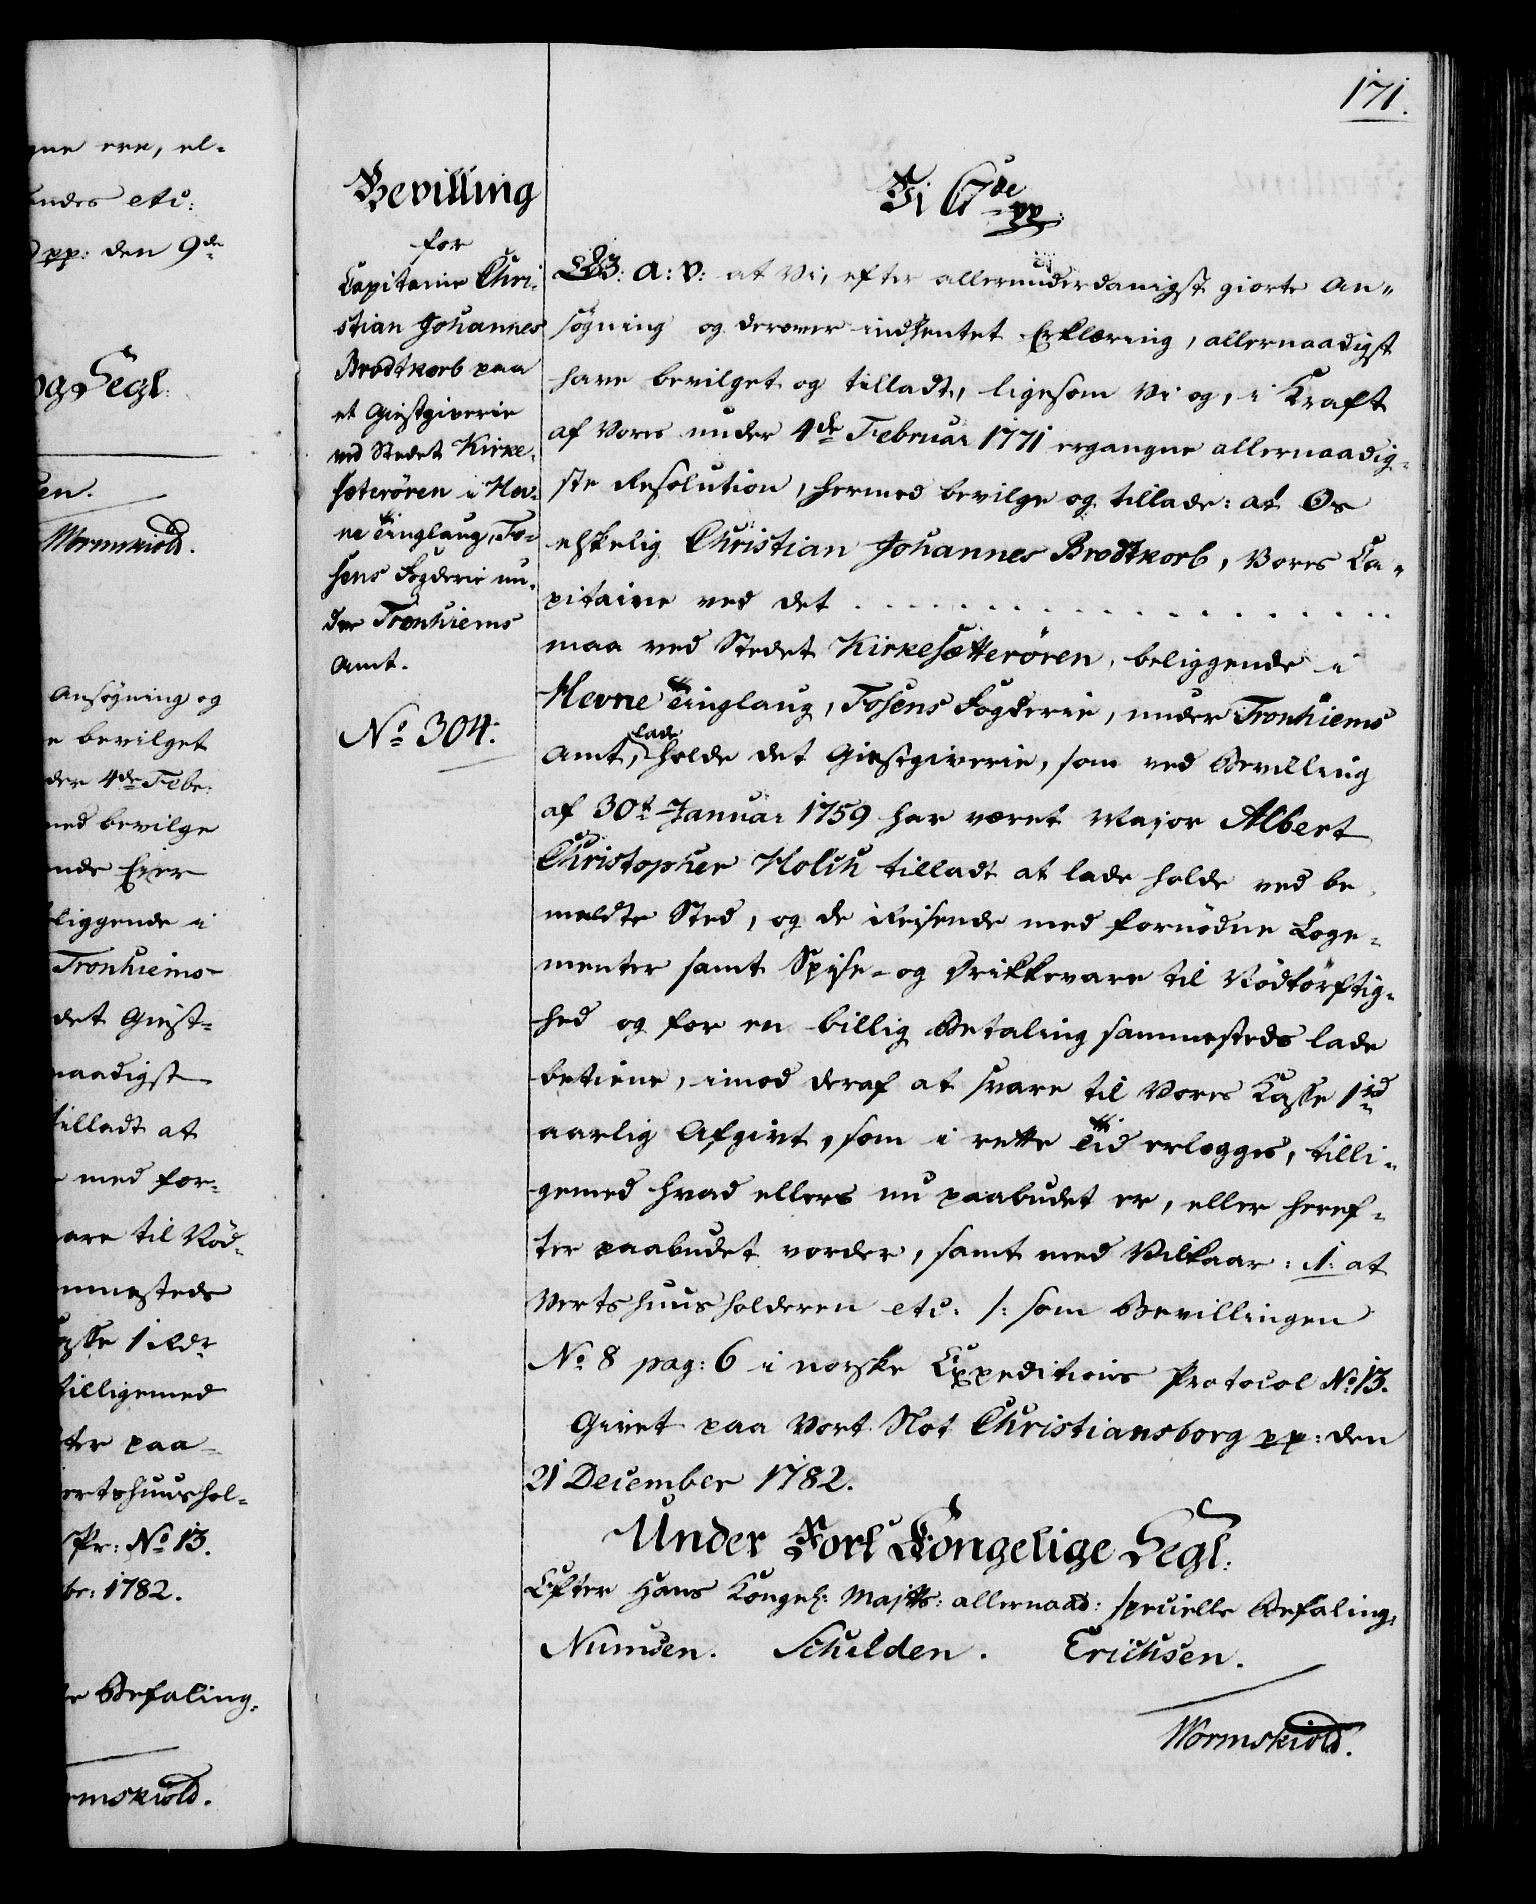 gne ere, el-
ludes etc:
pp: den 9de
og Segl.
sen.
Wormskiold.
Ansøgning og
e bevilget
der 4de Febr:
med bevilge
ende Eier
liggende i
Tronhiems-
det Giest-
naadigst
tilladt at
med for-
vare til Nød-
mmesteds
Casse 1 Rdr
tilligemed
ter paa-
ertshuushol-
Pr: No 13.
br: 1782.
te Befaling.
rmskiold.
171.
Bevilling
for
Capitaine Chri-
stian Johannes
Brodtkorb paa
et Giestgiverie
ved Stedet Kirke-
sæterøren i Hev-
ne Tinglaug, Fo-
sens Fogderie un-
der Tronhiems
Amt.
No 304.
Vi C7de pp:
G: A: V: at Vi, efter allerunderdanigst giorte An-
søgning og derover indhentet Erklæring, allernaadigst
have bevilget og tilladt, ligesom Vi og, i Kraft
af Vores under 4de Februar 1771 ergangne allernaadig-
ste Resolution, hermed bevilge og tillade: at Os
elskelig Christian Johannes Brodtkorb, Vores Ca-
pitaine ved det . . . . . . . . . . . . . . . . . .
maa ved Stedet Kirkesætterøren, beliggende i
Hevne Tinglaug, Fosens Fogderie, under Tronhiems
Amt, lade holde det Giestgiverie, som ved Bevilling
af 30t Januar 1759 har været Major Albert
Christopher Holch tilladt at lade holde ved be-
meldte Sted, og de Reisende med fornødne Loge-
menter samt Spise- og Drikkevare til Nødtørftig-
hed og for en billig Betaling sammesteds lade
betiene, imod deraf at svare til Vores Casse 1 rd
aarlig Afgivt, som i rette Tid erlegges, tilli-
gemed hvad ellers nu paabudet er, eller heref-
ter paabudet vorder, samt med Vilkaar: 1. at
Vertshuusholderen etc. /: som Bevillingen
No 8 pag: 6 i norske Expeditions Protocol No 13.
Givet paa Vort Slot Christiansborg pp: den
21 December 1782.
Under Vort Kongelige Segl.
Efter Hans Kongel: Majtts: allernaad: specielle Befaling.
Numsen. Schilden. Erichsen.
Wormskiold.